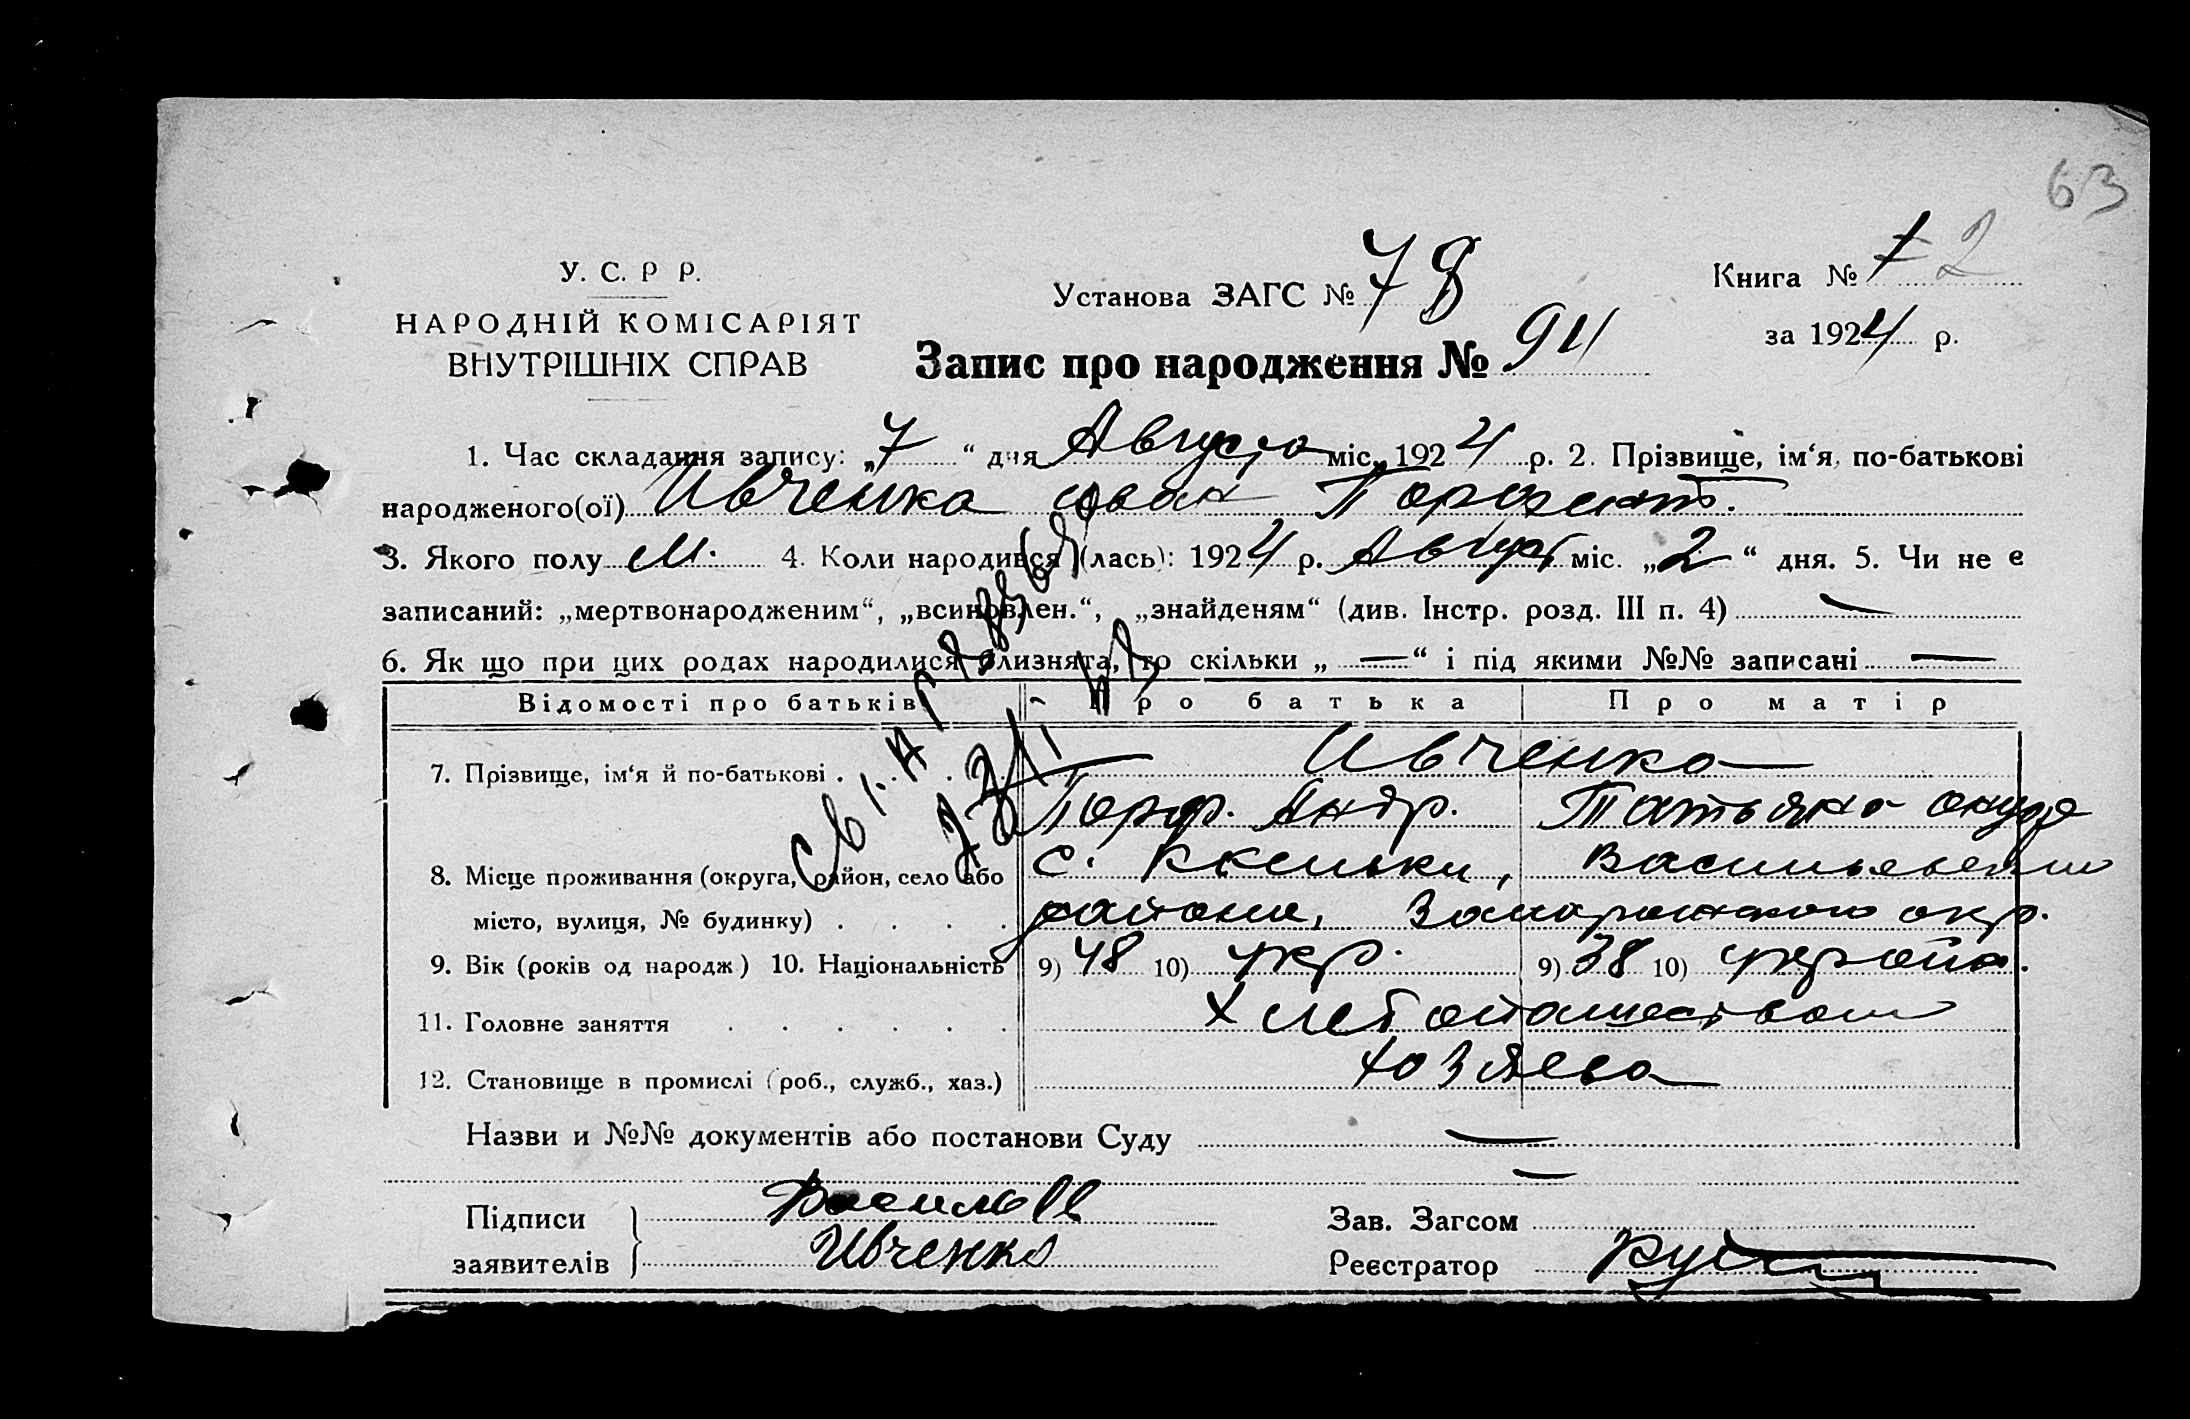 63
У. С. Р Р.
НАРОДНІЙ КОМІСАРІЯТ
ВНУТРІШНІХ СПРАВ
Установа ЗАГС № 78
Книга № 1 2
за 1924 р.
Запис про народження № 94
1. Час складання запису: „7“ дня Августа міс. 1924 р. 2. Прізвище, ім‘я, по-батькові
народженого(ої) Ивченко Иван
3. Якого полу М. 4. Коли народився (лась): 1924 р. Август міс. „2“ дня. 5. Чи не є
записаний: „мертвонародженим“, „всиновлен.“, „знайденям“ (див. Інстр. розд. III п. 4) —
6. Як що при цих родах народилися близнята, то скільки „ — “ і під якими №№ записані —
Відомості про батьків Про батька Про матір
7. Прізвище, ім‘я й по-батькові . . . . Ивченко
Порф. Андр. Татьяна
8. Місце проживання (округа, район, село або с.
місто, вулиця, № будинку) . . . . района, окр.
9. Вік (років од народж) 10. Національність 9) 48 10) укр. 9) 38 10)
11. Головне заняття . . . . . . Хлебопашеством
12. Становище в промислі (роб., служб., хаз.) хозяева
Назви и №№ документів або постанови Суду —
—
Підписи
заявителів Ивченко
Зав. Загсом
Реєстратор